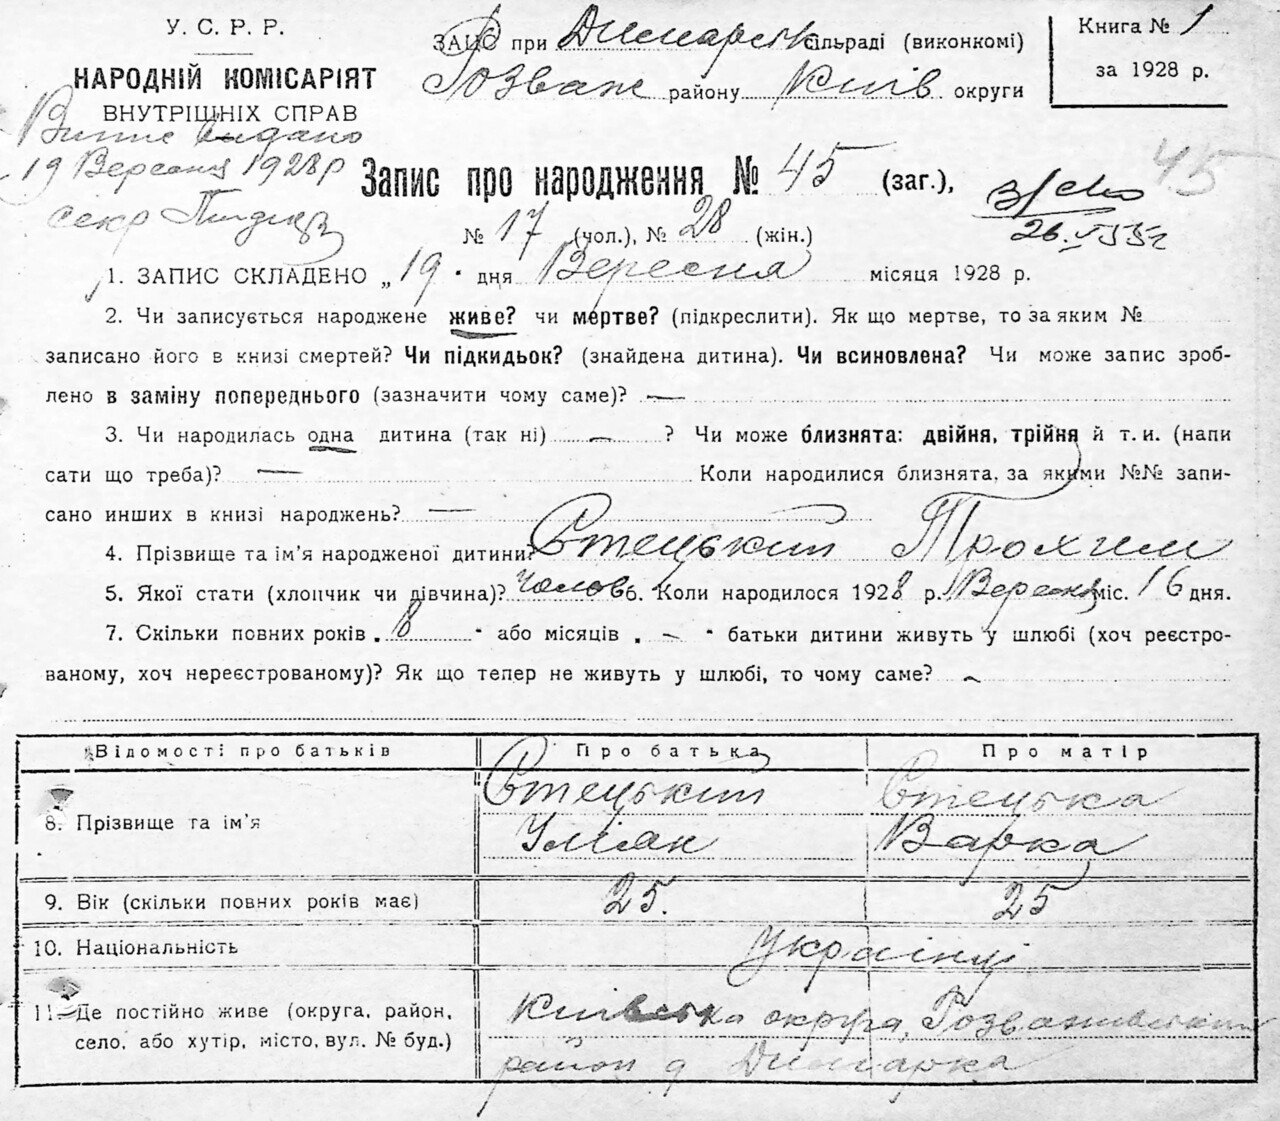 У. С. Р. Р.
НАРОДНІЙ КОМІСАРІЯТ
ВНУТРІШНІХ СПРАВ
Випис видано
19 Вересня 1928 р
секр
ЗАЦС при Димарськ сільраді (виконкомі)
Розваж району Київ округи
Книга № 1
за 1928 р.
45
Запис про народження № 45 (заг.),
№ 17 (чол.), № 28 (жін.)
1. ЗАПИС СКЛАДЕНО „19" дня Вересня місяця 1928 р.
2. Чи записується народжене живе? чи мертве? (підкреслити). Як що мертве, то за яким №
записано його в книзі смертей? Чи підкидьок? (знайдена дитина). Чи всиновлена? Чи може запис зроб-
лено в заміну попереднього (зазначити чому саме)? —
3. Чи народилась одна дитина (так ні) — ? Чи може близнята: двійня, трійня й т. и. (напи
сати що треба)? — Коли народилися близнята, за якими №№ запи-
сано инших в книзі народжень? —
4. Прізвище та ім'я народженої дитини? Стецький Трохим
5. Якої стати (хлопчик чи дівчина)? Чолов 6. Коли народилося 1928 р. Вересня міс. 16 дня.
7. Скільки повних років „8" або місяців „—" батьки дитини живуть у шлюбі (хоч реєстро-
ваному, хоч нереєстрованому)? Як що тепер не живуть у шлюбі, то чому саме? —
Відомості про батьків Про батька Про матір
8. Прізвище та ім'я Стецький Стецька
Уліян Варка
9. Вік (скільки повних років має) 25. 25
10. Національність Українці
11. Де постійно живе (округа, район, Київська округа, Розважівський
село, або хутір, місто, вул. № буд.) район с Димарка